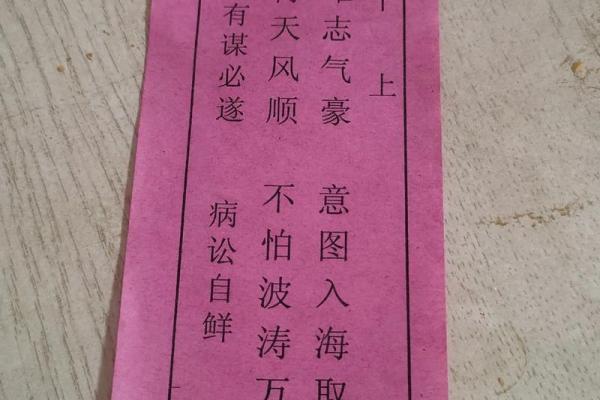 上
志气豪 意图入海取
天风顺 不怕波涛万
有谋必遂 病讼自鲜